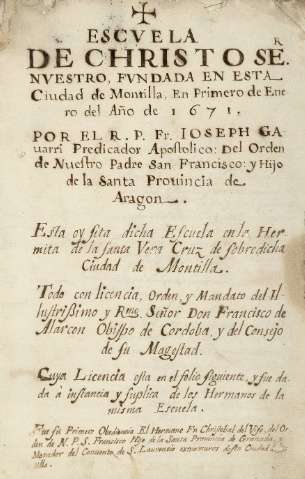 ESCVELA
DE CHRISTO SE.R
NVESTRO, FVNDADA EN ESTA
Ciudad de Montilla, En Primero de Ene
ro del Año de 1671.
POR EL R. P. Fr. IOSEPH Ga
uarri Predicador Apostolico: Del Orden
de Nuestro Padre San Francisco: y Hijo
de la Santa Prouincia de
Aragon.
Esta oy sita dicha Escuela en la Her
mita de la santa Vera Cruz de sobredicha
Ciudad de Montilla.
Todo con licencia, Orden, y Mandato del Il-
lustrissimo y Rmo Señor Don Francisco de
Alarcon Obispo de Cordoba, y del Consejo
de su Magestad.
Cuya Licencia esta en el folio siguiente, y fue da
da a instancia y suplica de los Hermanos de la
misma Escuela.
Fue su Primer Obediencia El Hermano Fr. Christobal del del Or
den de N. P. S. Francisco Hijo de la Santa Prouincia de Granada, y
Morador del Conuento de S. Laurencio extramuros desta Ciudad